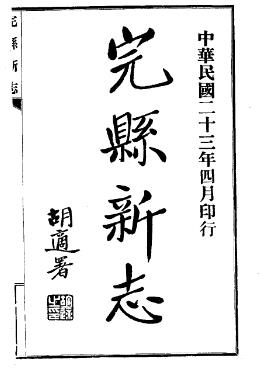 中華民國二十三年四月印行
完縣新志
胡適署
完縣新志